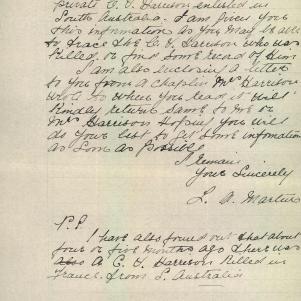 private C. E. Garrison enlisted in
South Australia. I am giving you
this information as you may be able
to trace the C. E. Garrison who was
killed, or find some record of him
I am also inclosing a letter
to you from a Chaplin Mrs Garrison
wrote to when you read it will
kindly return same to me or
Mrs Garrison Hoping you will
do your best to get some information
as soon as possible
I remain
Yours Sincerely
L. A. Martin
P.S.
I have also found out that about
four or five months ago there was
also a C. E. Garrison killed in
France. from S. Australia